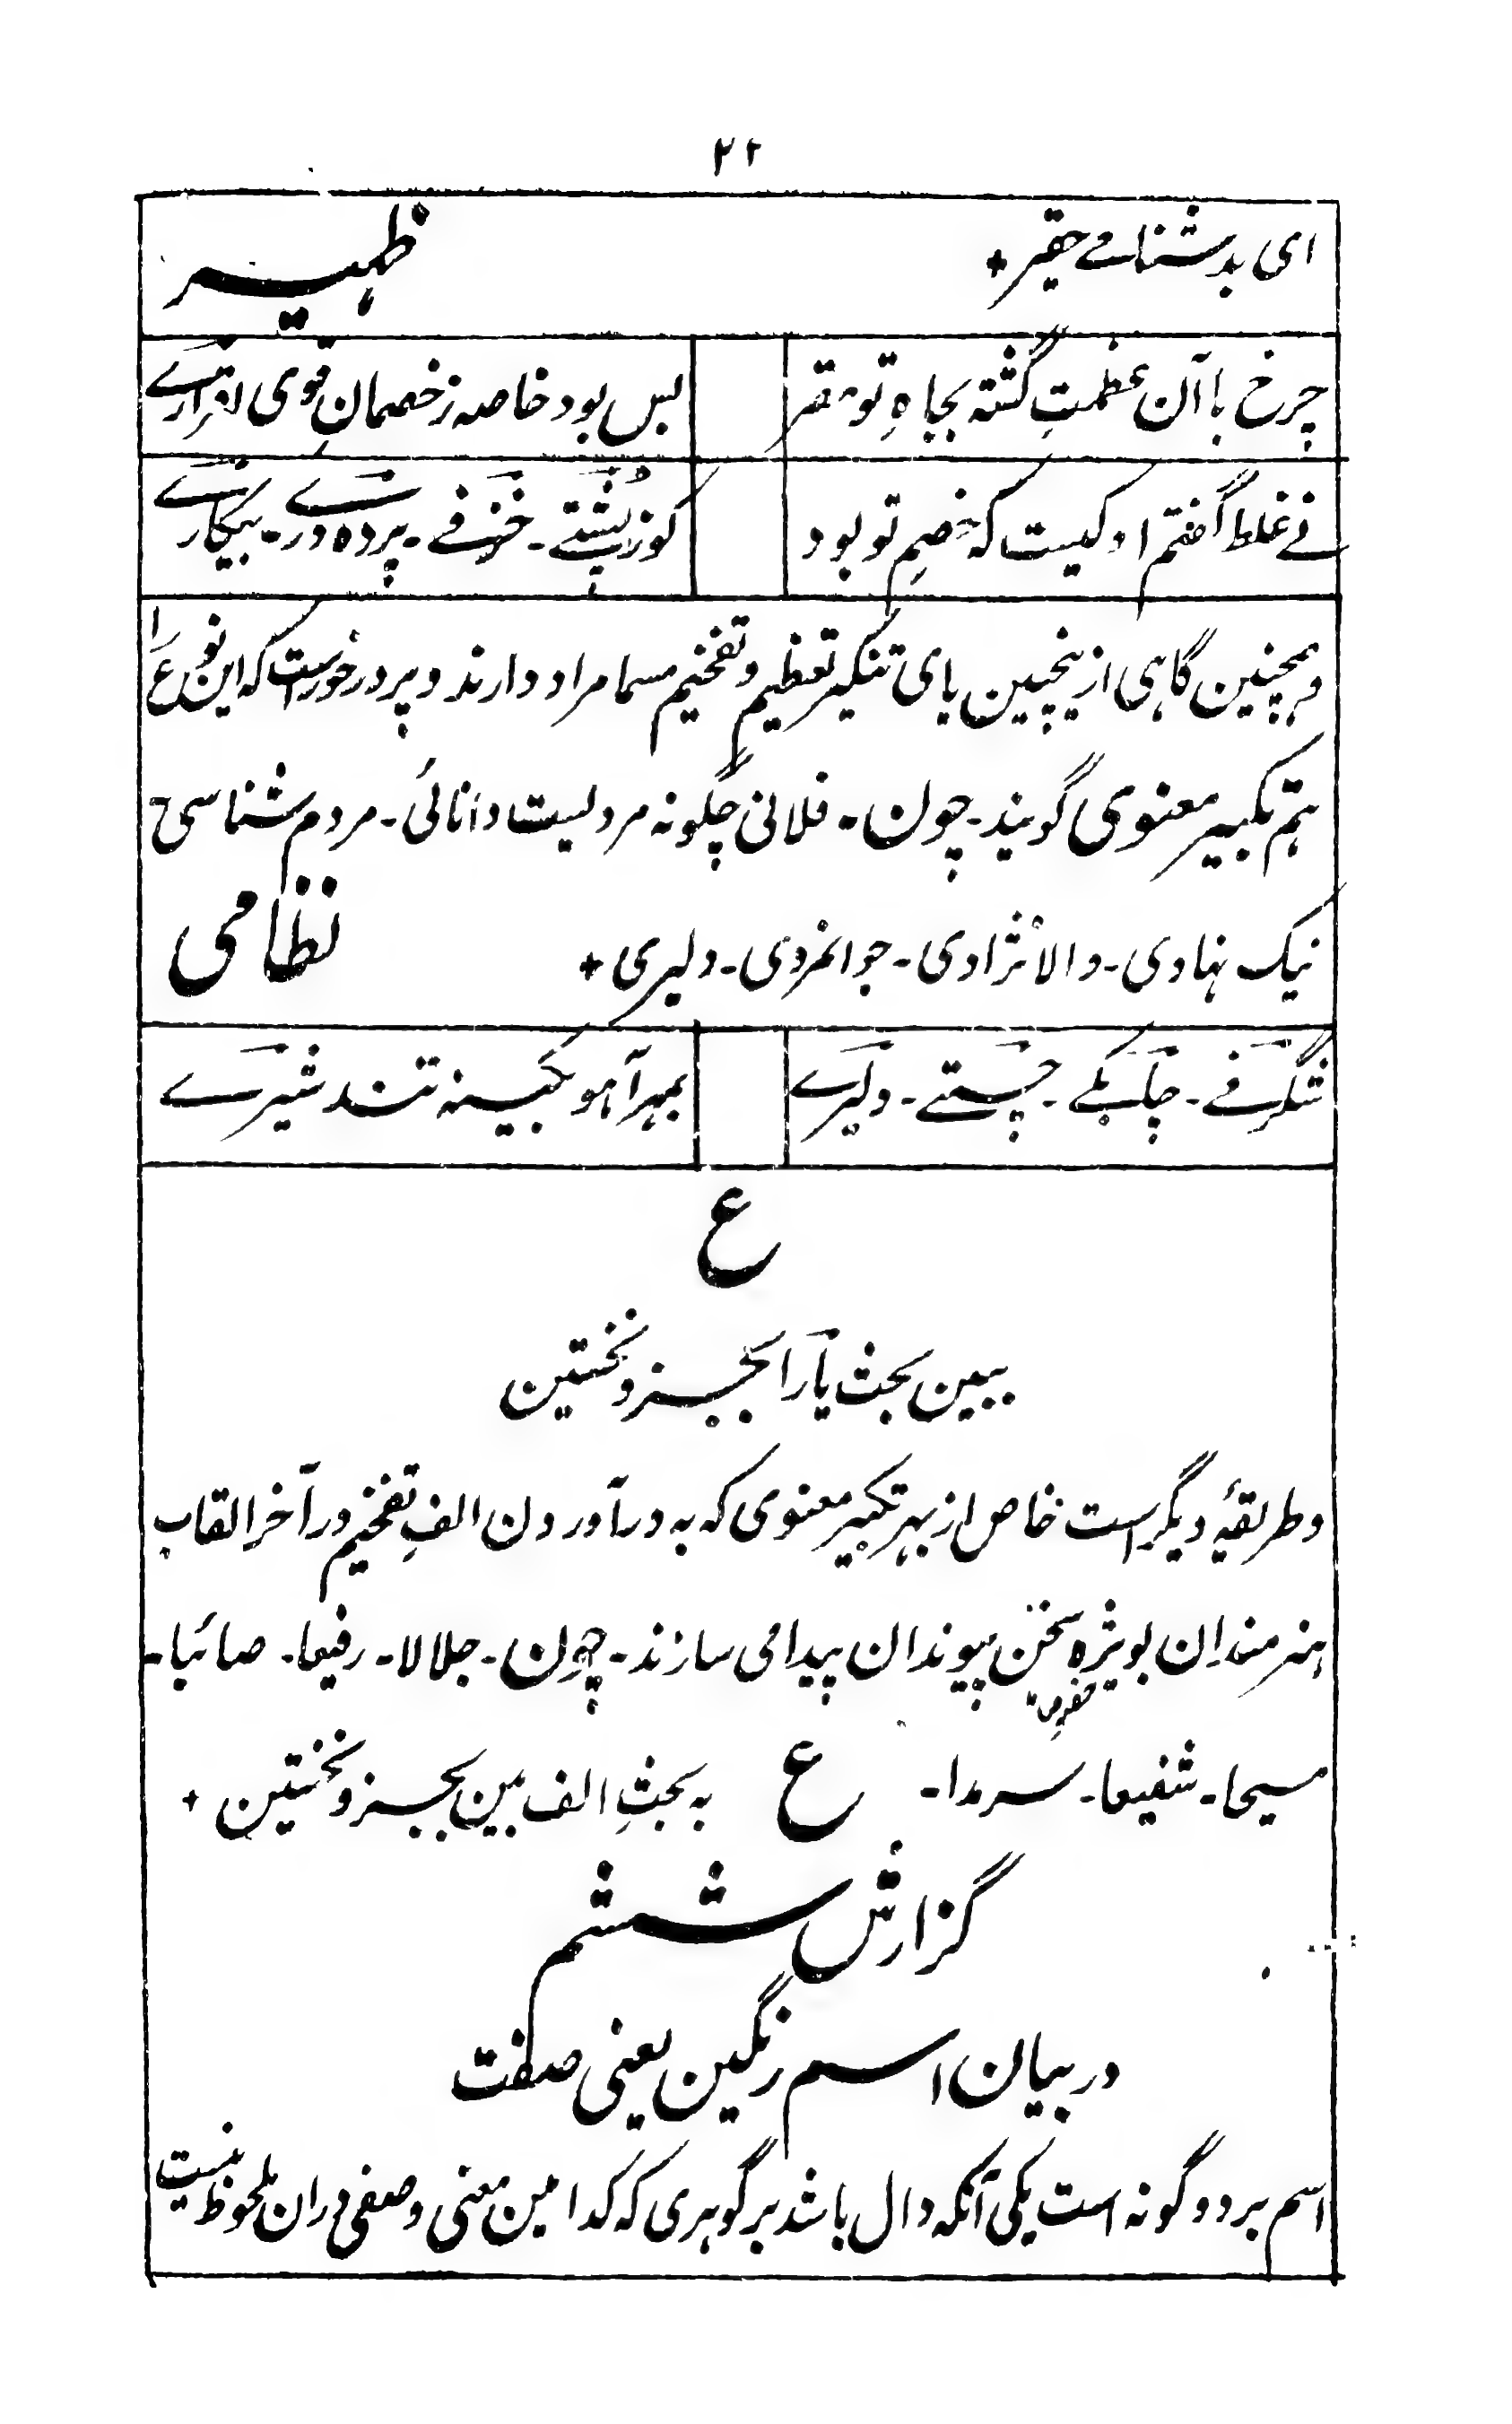 ۲۲
ای بدشنامے حقیر + ظہیر
چرخ با آن عظمتِ گشته بجاهِ تو مقر بس بود خاصه ز خصمانِ قوی اقرارے
نے غلط گفتم او کیست که خصمِ تو بود کوز پشتے - خزفے - پرده درے - بیکارے
و همچنین گاهی ازینچنین یای تنکیر تعظیم و تفخیم مسما مراد دارند و پر درخورست که این نوع را
هم تکبیر معنوی گویند - چون - فلانی چگونه مردیست دانائی - مردم شناسی
نیک نهادی - والانژادی - جوانمردی - دلیری + نظامی
شگرفے - چابکے - چستے - دلیرے بمهر آهو بکینه تند شیرے
ع
ببین بحث یا را بجزو نخستین
و طریقهٔ دیگر است خاص از بهر تکبیر معنوی که به درآوردن الفِ تفخیم در آخر القاب
هنرمندان بویژه سخن پیوندان پیدا می سازند - چون - جلالا - رفیعا - صائبا -
مسیحا - شفیعا - سرمدا - ع به بحثِ الف بین بجزو نخستین +
گزارش ششم
در بیان اسم رنگین یعنی صفت
اسم بر دو گونه است یکی آنکه دال باشد بر گوهری که کدامین معنی وصفی دران ملحوظ نیست